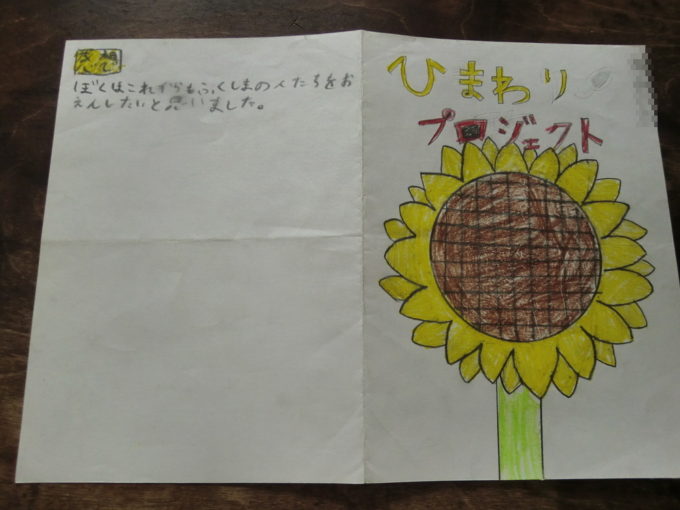 感想
ぼくはこれからもふくしまの人たちをお
えんしたいと思いました。
ひまわり
プロジェクト